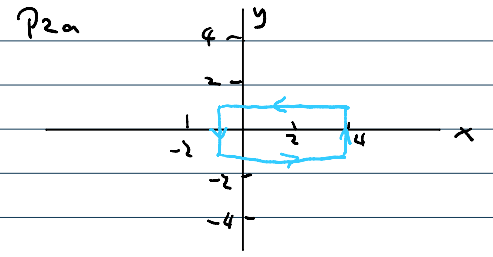 P2a
y
4
2
-2
2
4
x
-2
-4